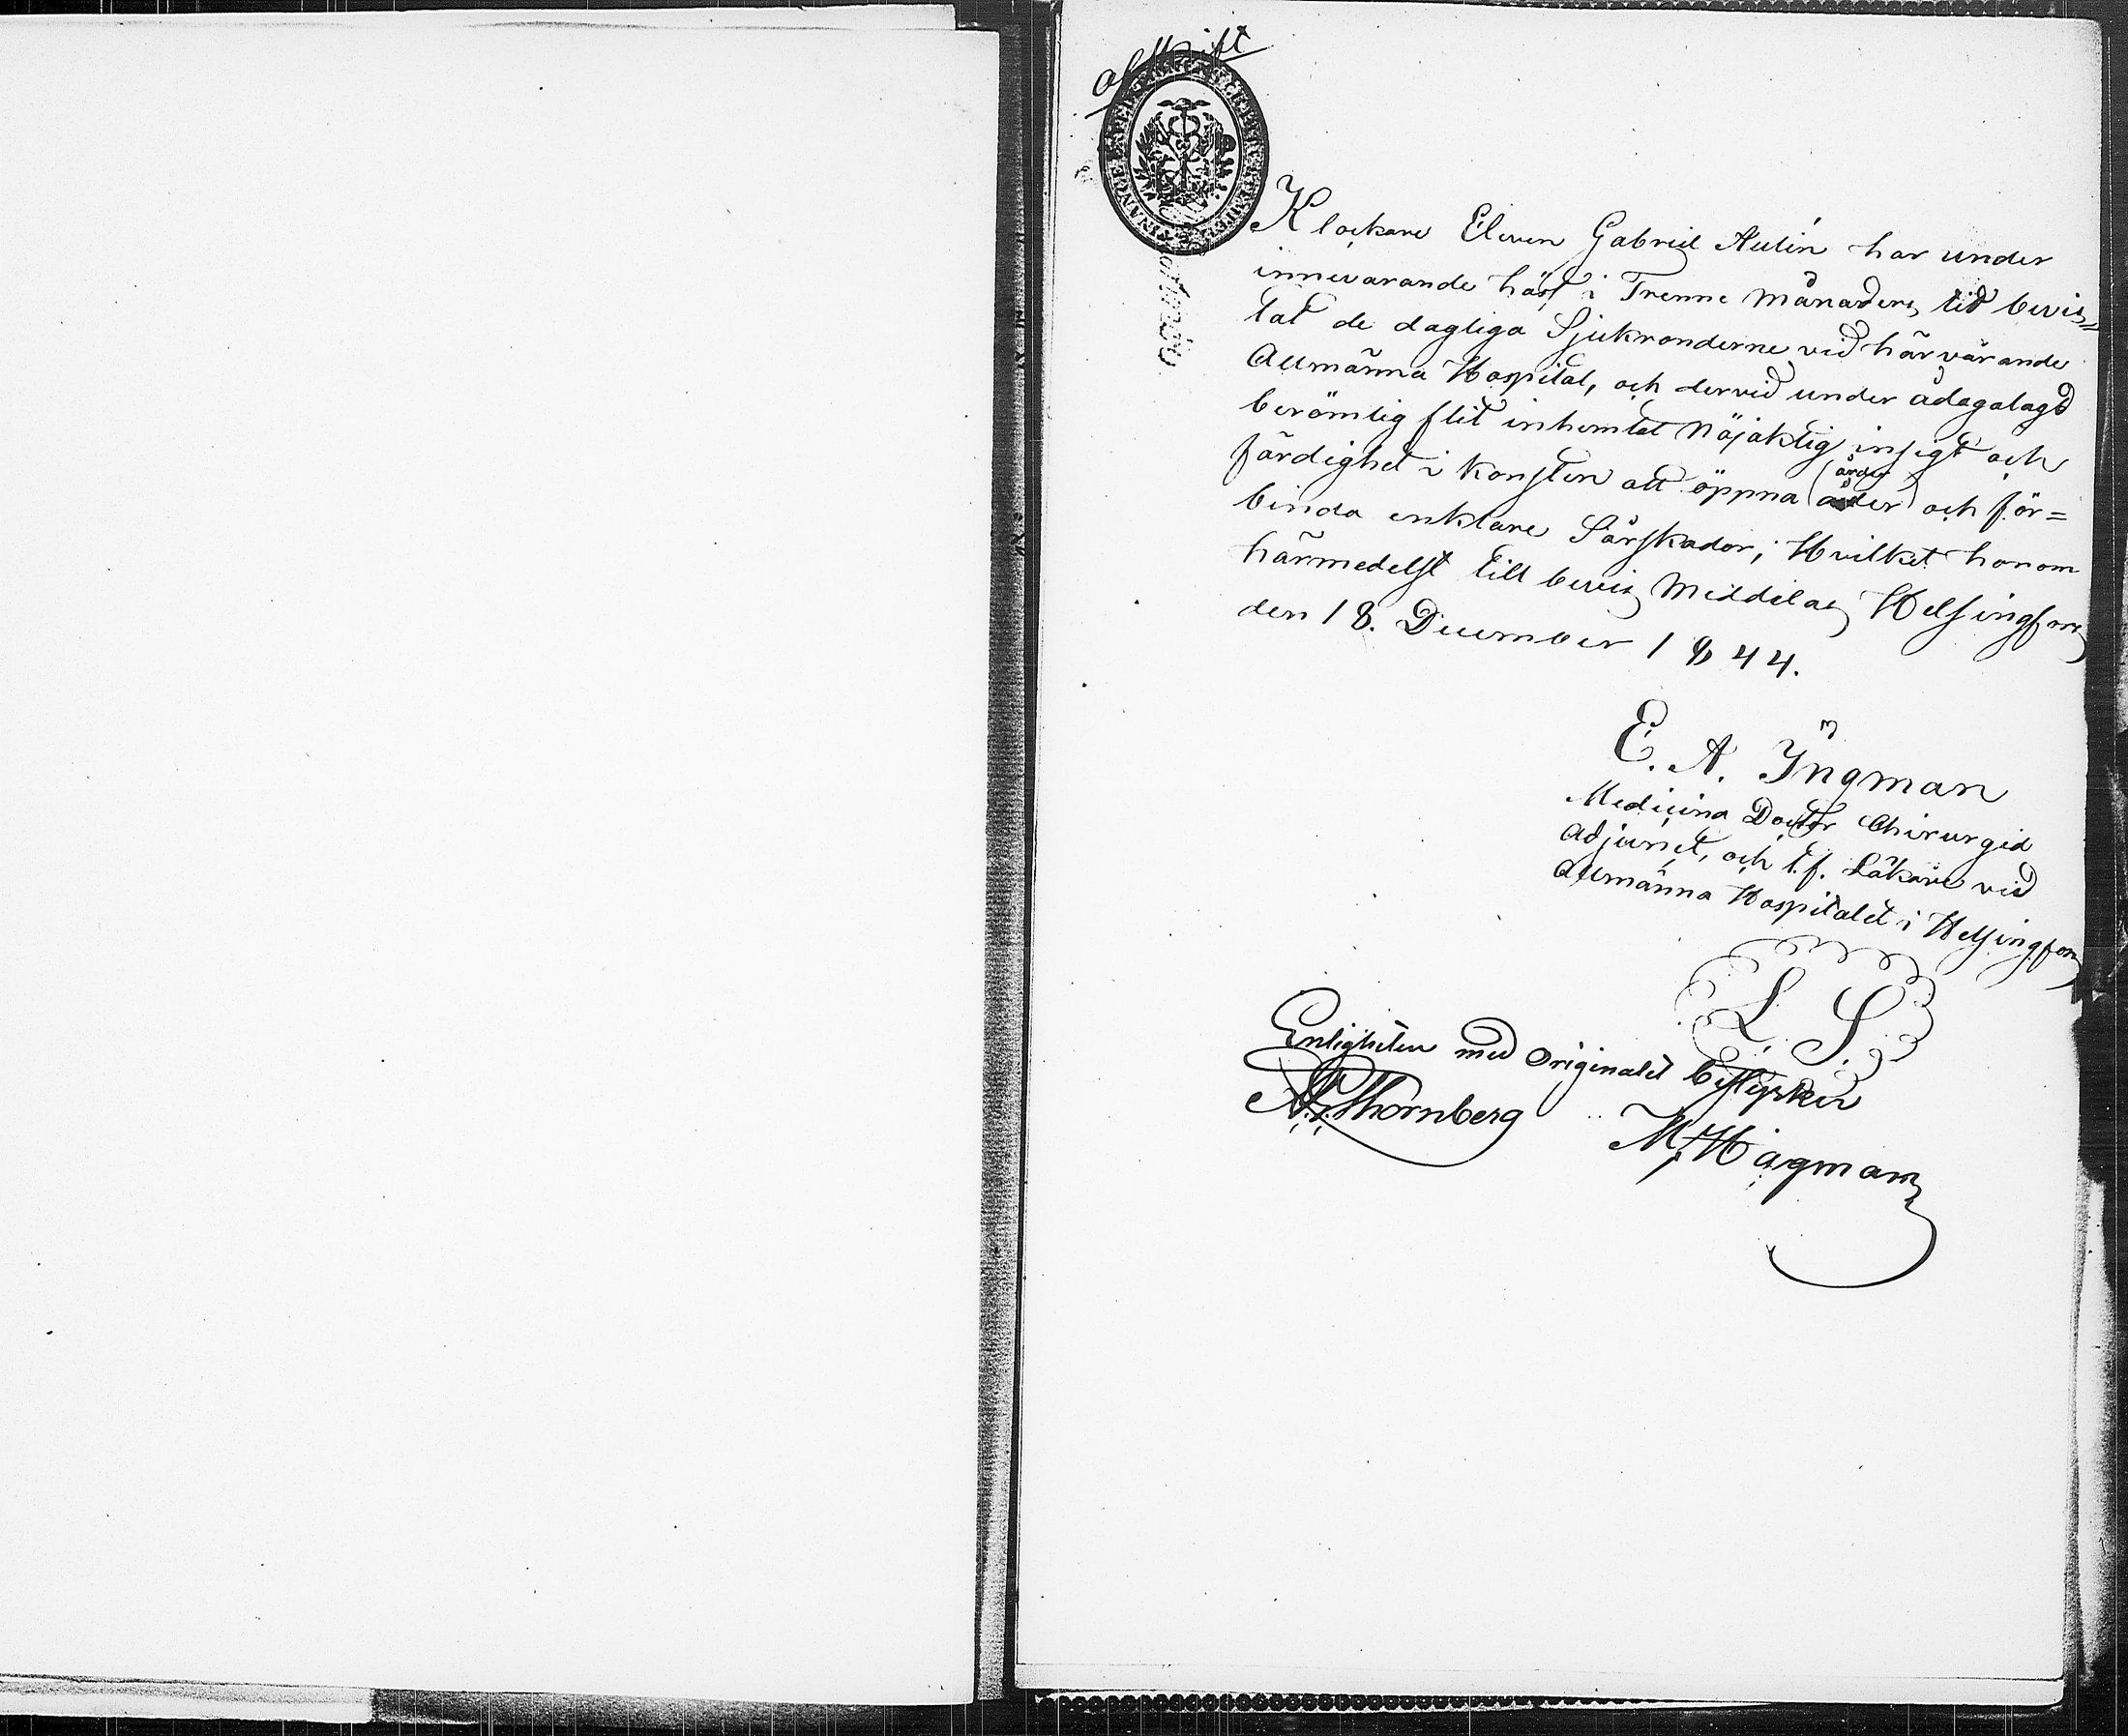 afskrift
Klockare Eleven Gabriel Aulin har under
innevarande häst i Trenne månaders tid bevis=
tat de dagliga Sjukronderne vid härvärande
Allmänna Hospital, och dervid under ådagalagd
berömlig flit inhemtat Nöjaktig insigt och
färdighet i konsten att öppna (åder) och för=
åder
binda enklare Sårskador; Hvilket honom
härmedelst till bevis Meddelas, Helsingfors
den 18. December 1844.
E. A. Ingman
Medicina Doctor Chirurgiæ
Adjunct, och t.f. Läkare vid
Allmänna Hospitalet i Helsingfors
L. S.
Enligheten med Originalet bestyrker
Thornberg M. Hägman